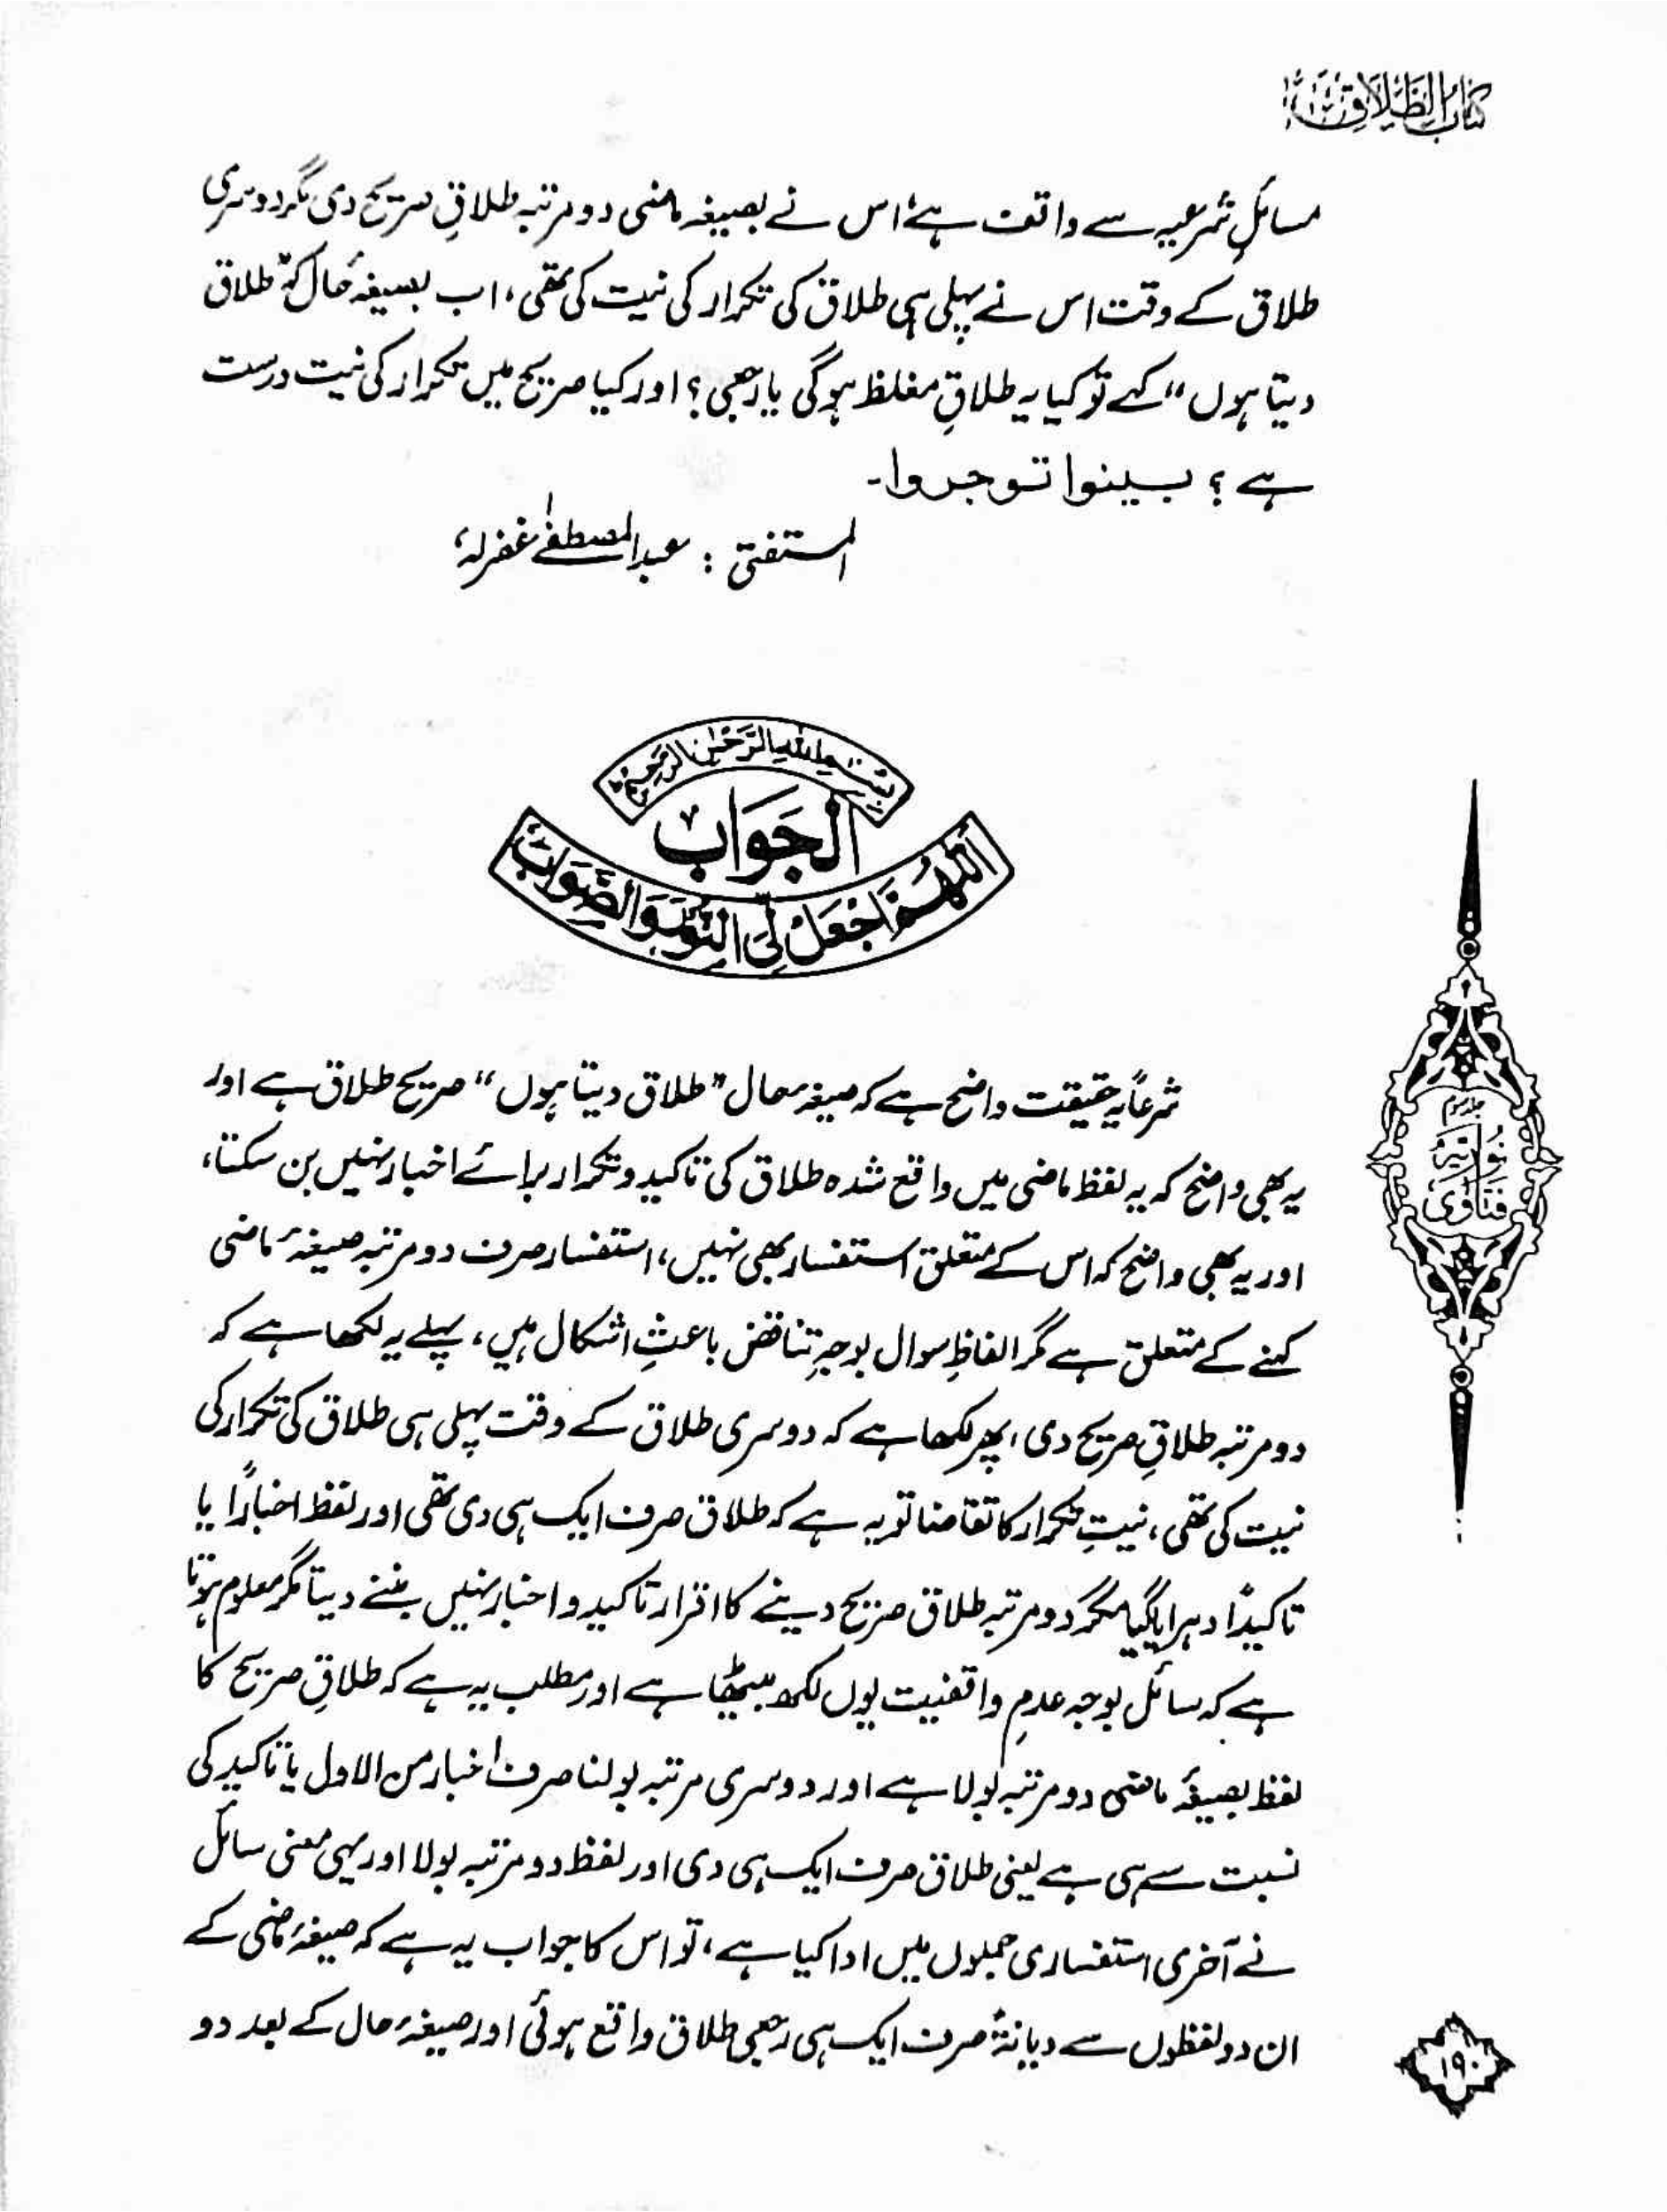 کتاب الطلاق
مسائلِ شرعیہ سے واقف ہے، اس نے بصیغہ ماضی دو مرتبہ طلاقِ صریح دی مگر دوسری
طلاق کے وقت اس نے پہلی ہی طلاق کی تکرار کی نیت کی تھی، اب بصیغۂ حال کہ "طلاق
دیتا ہوں" کہے تو کیا یہ طلاقِ مغلظ ہوگی یا رجعی؟ اور کیا صریح میں تکرار کی نیت درست
ہے؟ بینوا توجروا۔
المستفتی : عبدالمصطفٰے غفرلہٗ
بسم اللہ الرحمٰن الرحیم
الجواب
اللهم اجعل لی النور والصواب
شرعاً یہ حقیقت واضح ہے کہ صیغۂ حال "طلاق دیتا ہوں" صریح طلاق ہے اور
یہ بھی واضح کہ یہ لفظ ماضی میں واقع شدہ طلاق کی تاکید و تکرار برائے اخبار نہیں بن سکتا،
اور یہ بھی واضح کہ اس کے متعلق استفسار بھی نہیں، استفسار صرف دو مرتبہ صیغۂ ماضی
کہنے کے متعلق ہے مگر الفاظِ سوال بوجہِ تناقض باعثِ اشکال ہیں، پہلے یہ لکھا ہے کہ
دو مرتبہ طلاقِ صریح دی، پھر لکھا ہے کہ دوسری طلاق کے وقت پہلی ہی طلاق کی تکرار کی
نیت کی تھی، نیتِ تکرار کا تقاضا تو یہ ہے کہ طلاق صرف ایک ہی دی تھی اور لفظ اخباراً یا
تاکیداً دہرایا گیا مگر دو مرتبہ طلاق صریح دینے کا اقرار تاکید و اخبار نہیں بننے دیتا مگر معلوم ہوتا
ہے کہ سائل بوجہ عدمِ واقفیت یوں لکھ بیٹھا ہے اور مطلب یہ ہے کہ طلاقِ صریح کا
لفظ بصیغۂ ماضی دو مرتبہ بولا ہے اور دوسری مرتبہ بولنا صرف اخبار من الاول یا تاکید کی
نسبت سے ہی ہے یعنی طلاق صرف ایک ہی دی اور لفظ دو مرتبہ بولا اور یہی معنی سائل
نے آخری استفساری جملوں میں ادا کیا ہے، تو اس کا جواب یہ ہے کہ صیغۂ ماضی کے
ان دو لفظوں سے دیانۃً صرف ایک ہی رجعی طلاق واقع ہوئی اور صیغۂ حال کے بعد دو
جلد سوم
نوریہ
فتاوٰی
۱۹۰